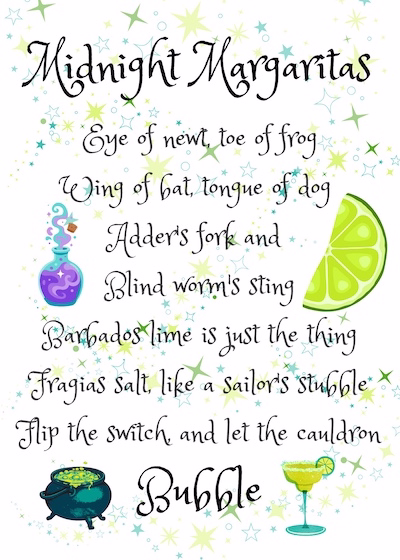 Midnight Margaritas
Eye of newt, toe of frog
Wing of bat, tongue of dog
Adder's fork and
Blind worm's sting
Barbados lime is just the thing
Fragias salt, like a sailor's stubble
Flip the switch, and let the cauldron
Bubble